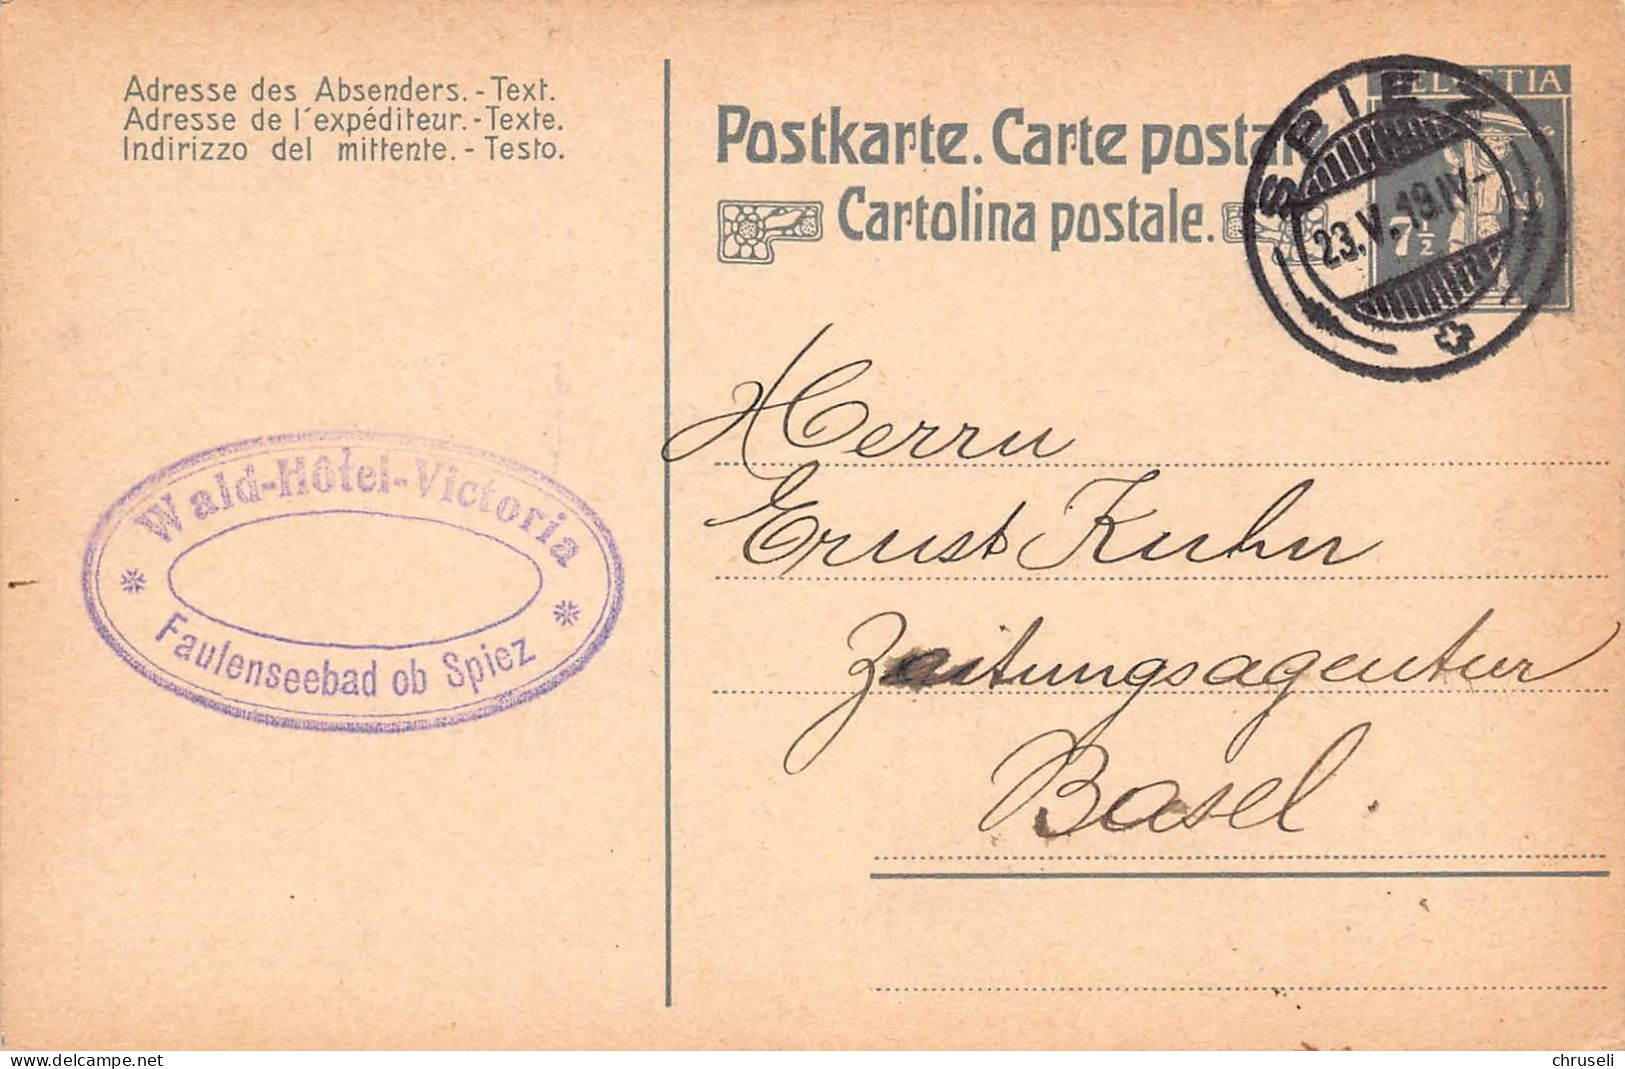 Adresse des Absenders. - Text.
Adresse de l'expéditeur. - Texte.
Indirizzo del mittente. - Testo.
Postkarte. Carte postale.
Cartolina postale.
HELVETIA
7½
SPIEZ
23.V. 19.IV-
Wald-Hôtel-Victoria
Faulenseebad ob Spiez
Herrn
Ernst Kuhn
Zeitungsagentur
Basel.
delcampe.net
chruseli